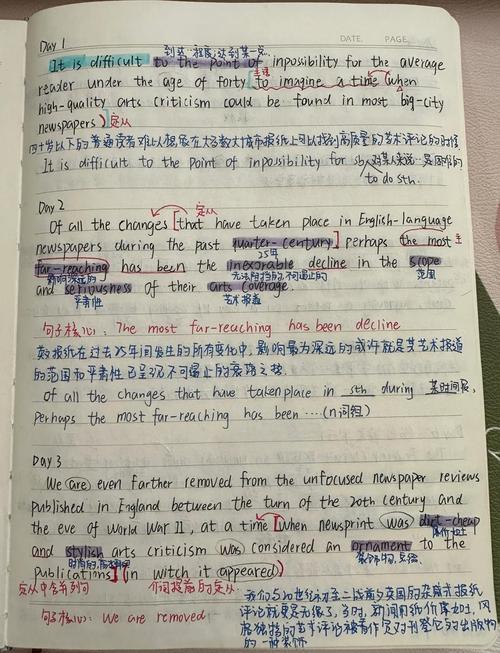 DATE. PAGE.
Day 1
到某一程度,达到某一点
It is difficult to the point of inpossibility for the average
主语
reader under the age of forty [to imagine a time (when
high-quality arts criticism could be found in most big-city
newspapers)] 定从
四十岁以下的普通读者难以想象在大多数大城市报纸上可以找到高质量的艺术评论的时候
It is difficult to the point of inpossibility for sb 对某人来说 是困难的
to do sth.
Day 2
定从
Of all the changes [that have taken place in English-language
newspapers during the past quarter-century] perhaps the most 主
25年
far-reaching has been the inexorable decline in the scope
影响深远的 无法阻挡的,不可遏止的 范围
and seriousness of their arts coverage.
严肃性 艺术报道
句子核心: The most far-reaching has been decline
报纸在过去25年间发生的所有变化中,影响最为深远的或许就是其艺术报道
的范围和严肃性已呈现不可遏止的衰落之势.
Of all the changes that have taken place in sth during 某时间段,
Perhaps the most far-reaching has been ···· (n词组)
Day 3
We are even farther removed from the unfocused newspaper reviews
published in England between the turn of the 20th century and
the eve of World War II, at a time [when newsprint was dirt-cheap
and stylish arts criticism was considered an ornament to the
publications] (in witch it appeared)
定从中含并列句 介词提前的定从
句子核心: We are removed
我们与20世纪初至二战前夕英国的杂乱式报纸
评论就更是无缘了,当时,新闻用纸价廉如土,风
格独特的艺术评论被看作是对刊登它的出版物
的一种装饰